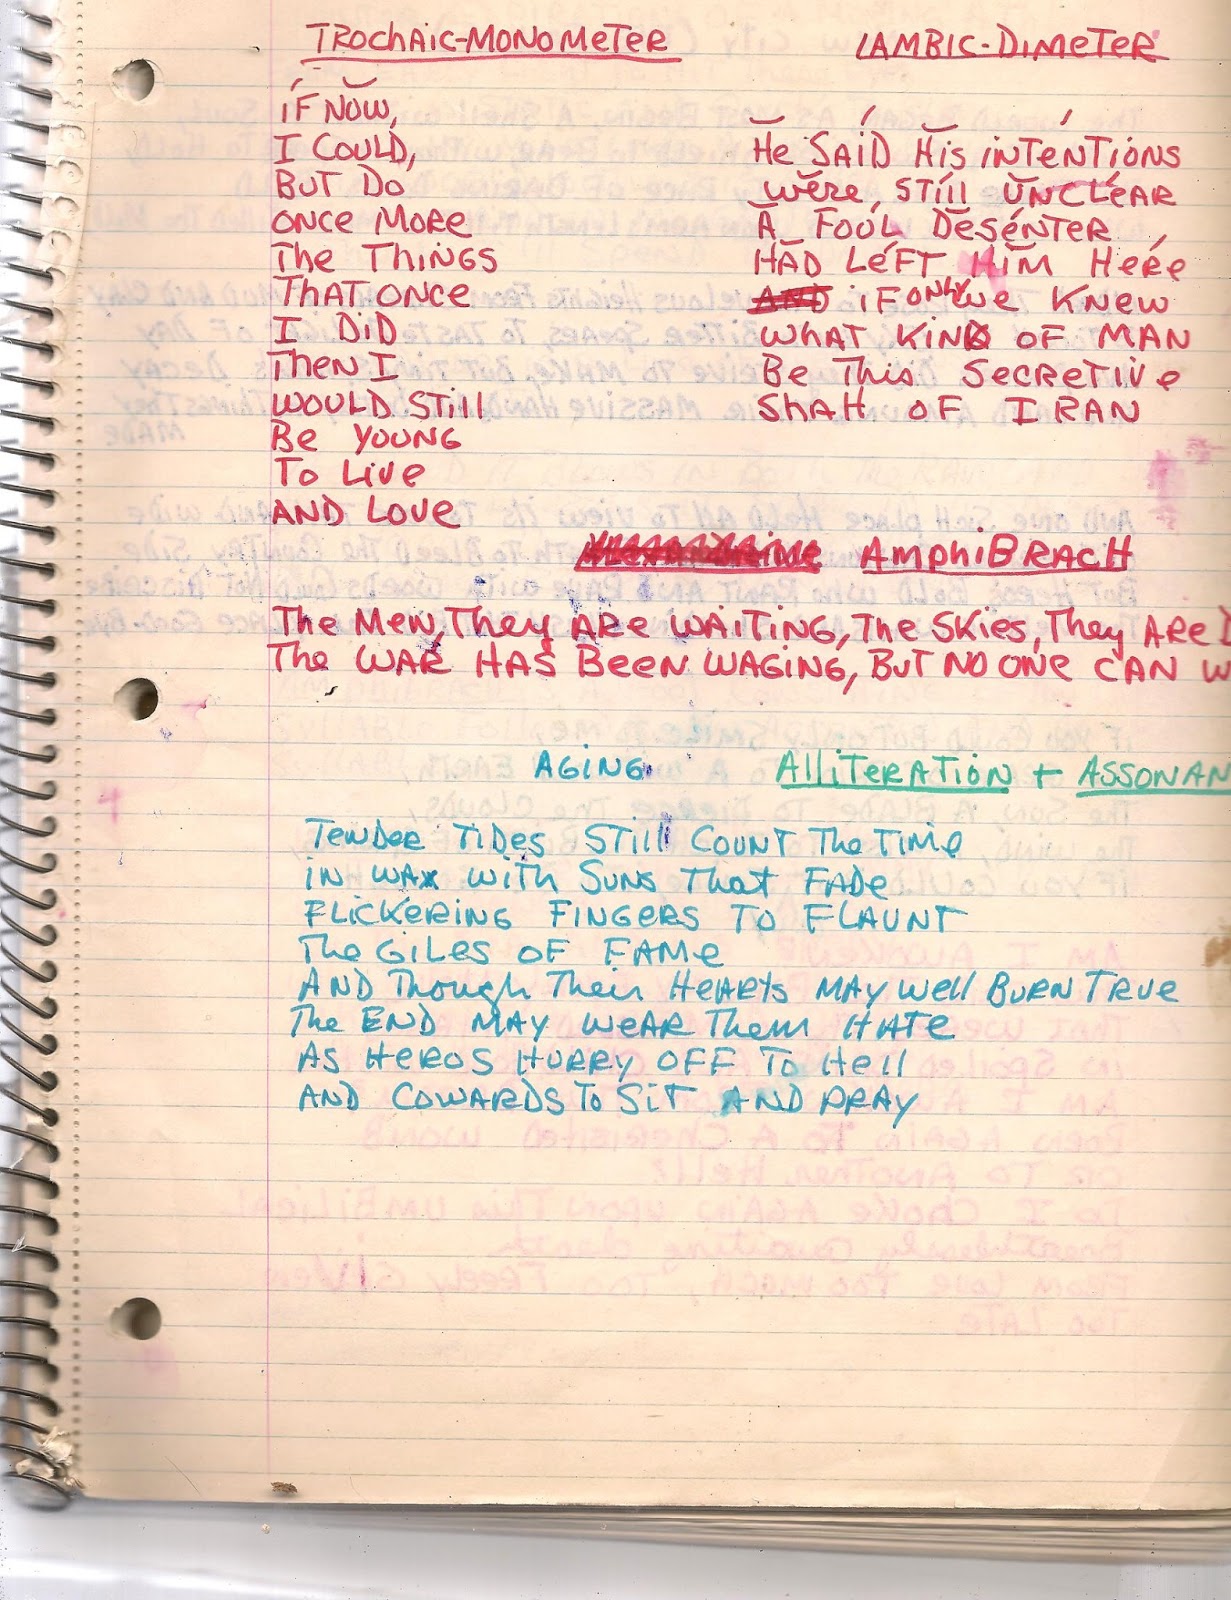 TROCHAIC-MONOMETER
IF NOW,
I COULD,
BUT DO
ONCE MORE
THE THINGS
THAT ONCE
I DID
THEN I
WOULD STILL
BE YOUNG
TO LIVE
AND LOVE
IAMBIC-DIMETER
HE SAID HIS INTENTIONS
WERE, STILL UNCLEAR
A FOOL DESENTER
HAD LEFT HIM HERE
AND IF ONLY WE KNEW
WHAT KIND OF MAN
BE THIS SECRETIVE
SHAH OF IRAN
AMPHIBRACH
THE MEN, THEY ARE WAITING, THE SKIES, THEY ARE D
THE WAR HAS BEEN WAGING, BUT NO ONE CAN W
AGING
ALLITERATION + ASSONAN
TENDER TIDES STILL COUNT THE TIME
IN WAX WITH SUNS THAT FADE
FLICKERING FINGERS TO FLAUNT
THE GILES OF FAME
AND THOUGH THEIR HEARTS MAY WELL BURN TRUE
THE END MAY WEAR THEM HATE
AS HEROS HURRY OFF TO HELL
AND COWARDS TO SIT AND PRAY